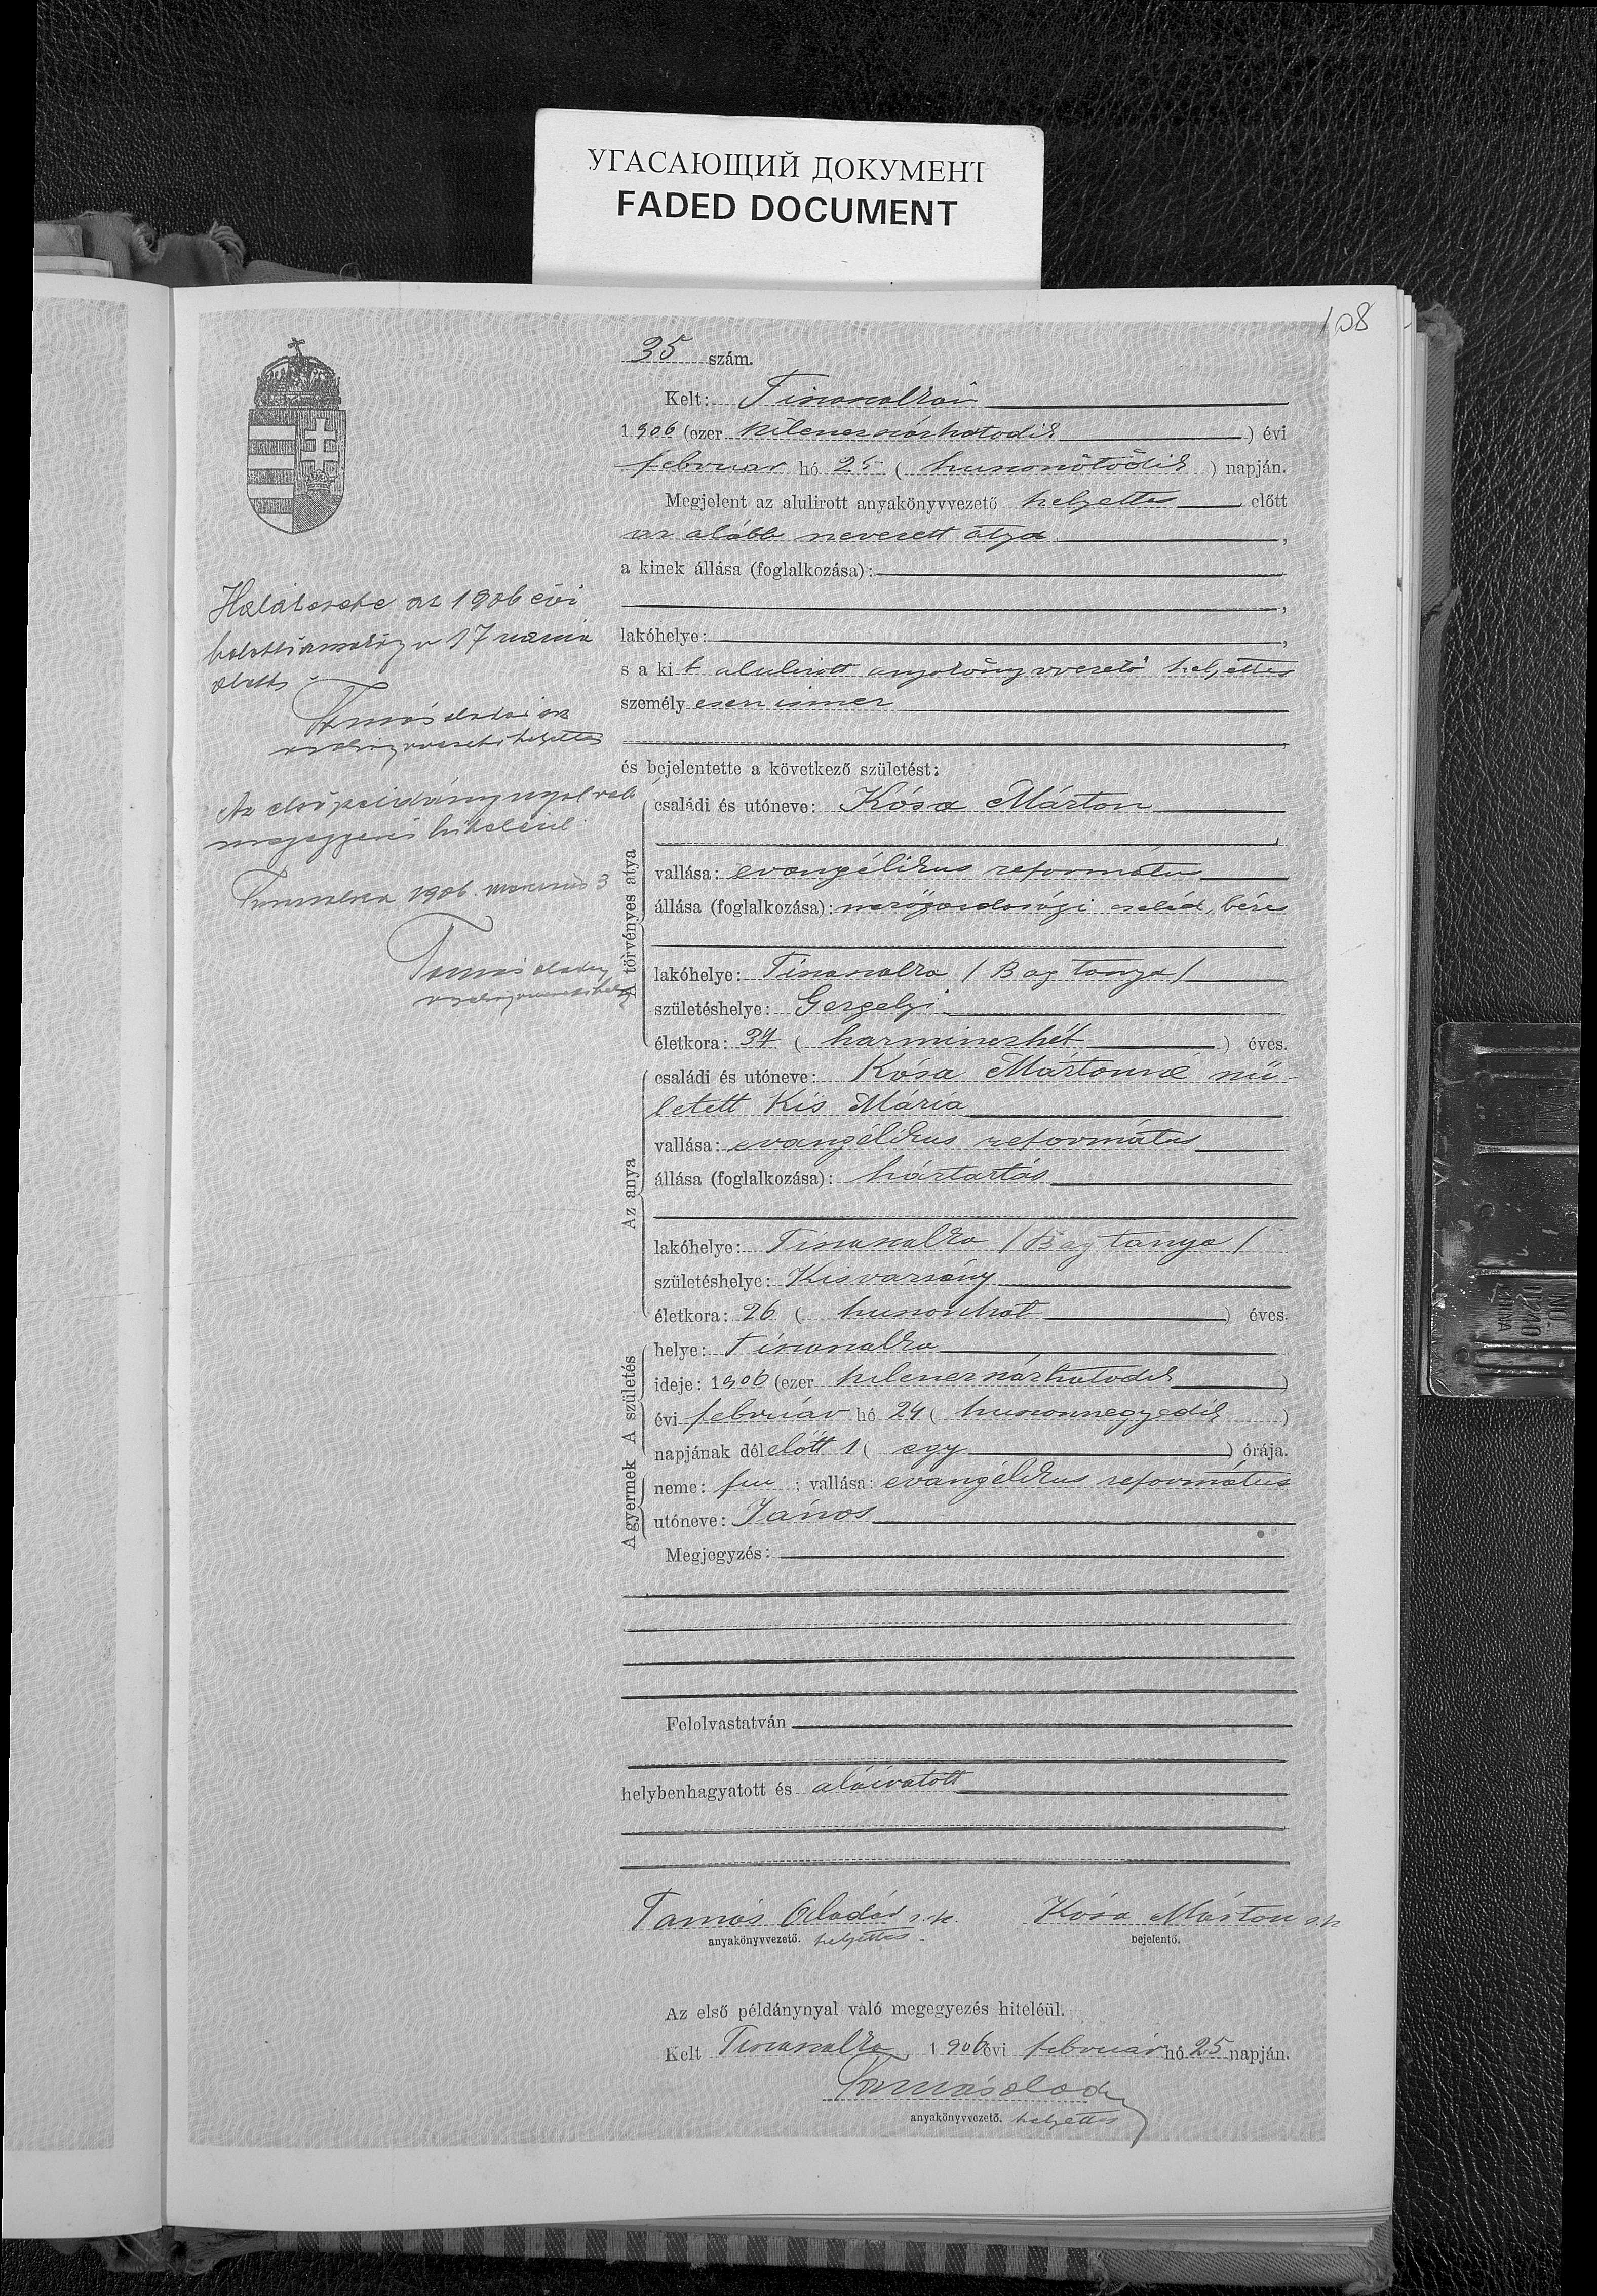 УГАСАЮЩИЙ ДОКУМЕНТ
FADED DOCUMENT
108
35 szám.
Kelt: Tiszaszalkán
1906 (ezer kilenczszázhatodik) évi
február hó 25 (huszonötödik) napján.
Megjelent az alulirott anyakönyvvezető helyettes előtt
az alább nevezett atya,
a kinek állása (foglalkozása):
lakóhelye:
s a kit alulirott anyakönyvvezető helyettes
személyesen ismer
és bejelentette a következő születést:
A törvényes atya
családi és utóneve: Kósa Márton
vallása: evangélikus református
állása (foglalkozása): mezőgazdasági cseléd, béres
lakóhelye: Tiszaszalka /Bag tanya/
születéshelye: Gergelyi
életkora: 37 (harminczhét) éves.
Az anya
családi és utóneve: Kósa Mártonné szü-
letett Kis Mária
vallása: evangélikus református
állása (foglalkozása): háztartás
lakóhelye: Tiszaszalka /Bag tanya/
születéshelye: Kisvarsány
életkora: 26 (huszonhat) éves.
A születés
helye: Tiszaszalka
ideje: 1906 (ezer kilenczszázhatodik)
évi február hó 24 (huszonnegyedik)
napjának délelőtt 1 (egy) órája.
A gyermek
neme: fiu; vallása: evangélikus református
utóneve: János
Megjegyzés:
Felolvastatván
helybenhagyatott és aláiratott
Tamás Aladár s.k. Kósa Márton s.k.
anyakönyvvezető. helyettes. bejelentő.
Az első példánynyal való megegyezés hiteléül.
Kelt Tiszaszalka, 1906 évi február hó 25 napján.
Tamás Aladár
anyakönyvvezető. helyettes
Halálesete az 1906 évi
halotti anyakönyv 17 száma
alatt.
Tamás Aladár sk
anyakönyvvezető helyettes
Az első példánynyal való
megegyezés hiteléül.
Tiszaszalka 1906. március 3
Tamás Aladár
anyakönyvvezető hely.